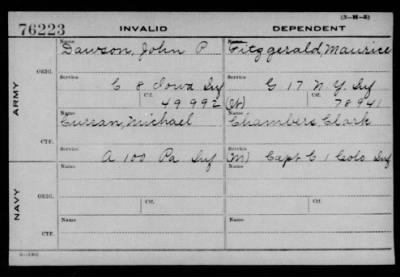 (3-H-8)
76223 INVALID DEPENDENT
Name Name
Dawson, John P Fitzgerald, Maurice
ORIG.
Service Service
C 8 Iowa Inf G 17 N.Y. Inf
Ctf. Ctf.
49992 (W) 78941
ARMY
Name Name
Curran, Michael Chambers, Clark
CTF.
Service Service
A 100 Pa Inf (M) Capt C 1 Colo Inf
Name Name
ORIG.
Service Ctf. Service Ctf.
NAVY
Name Name
CTF.